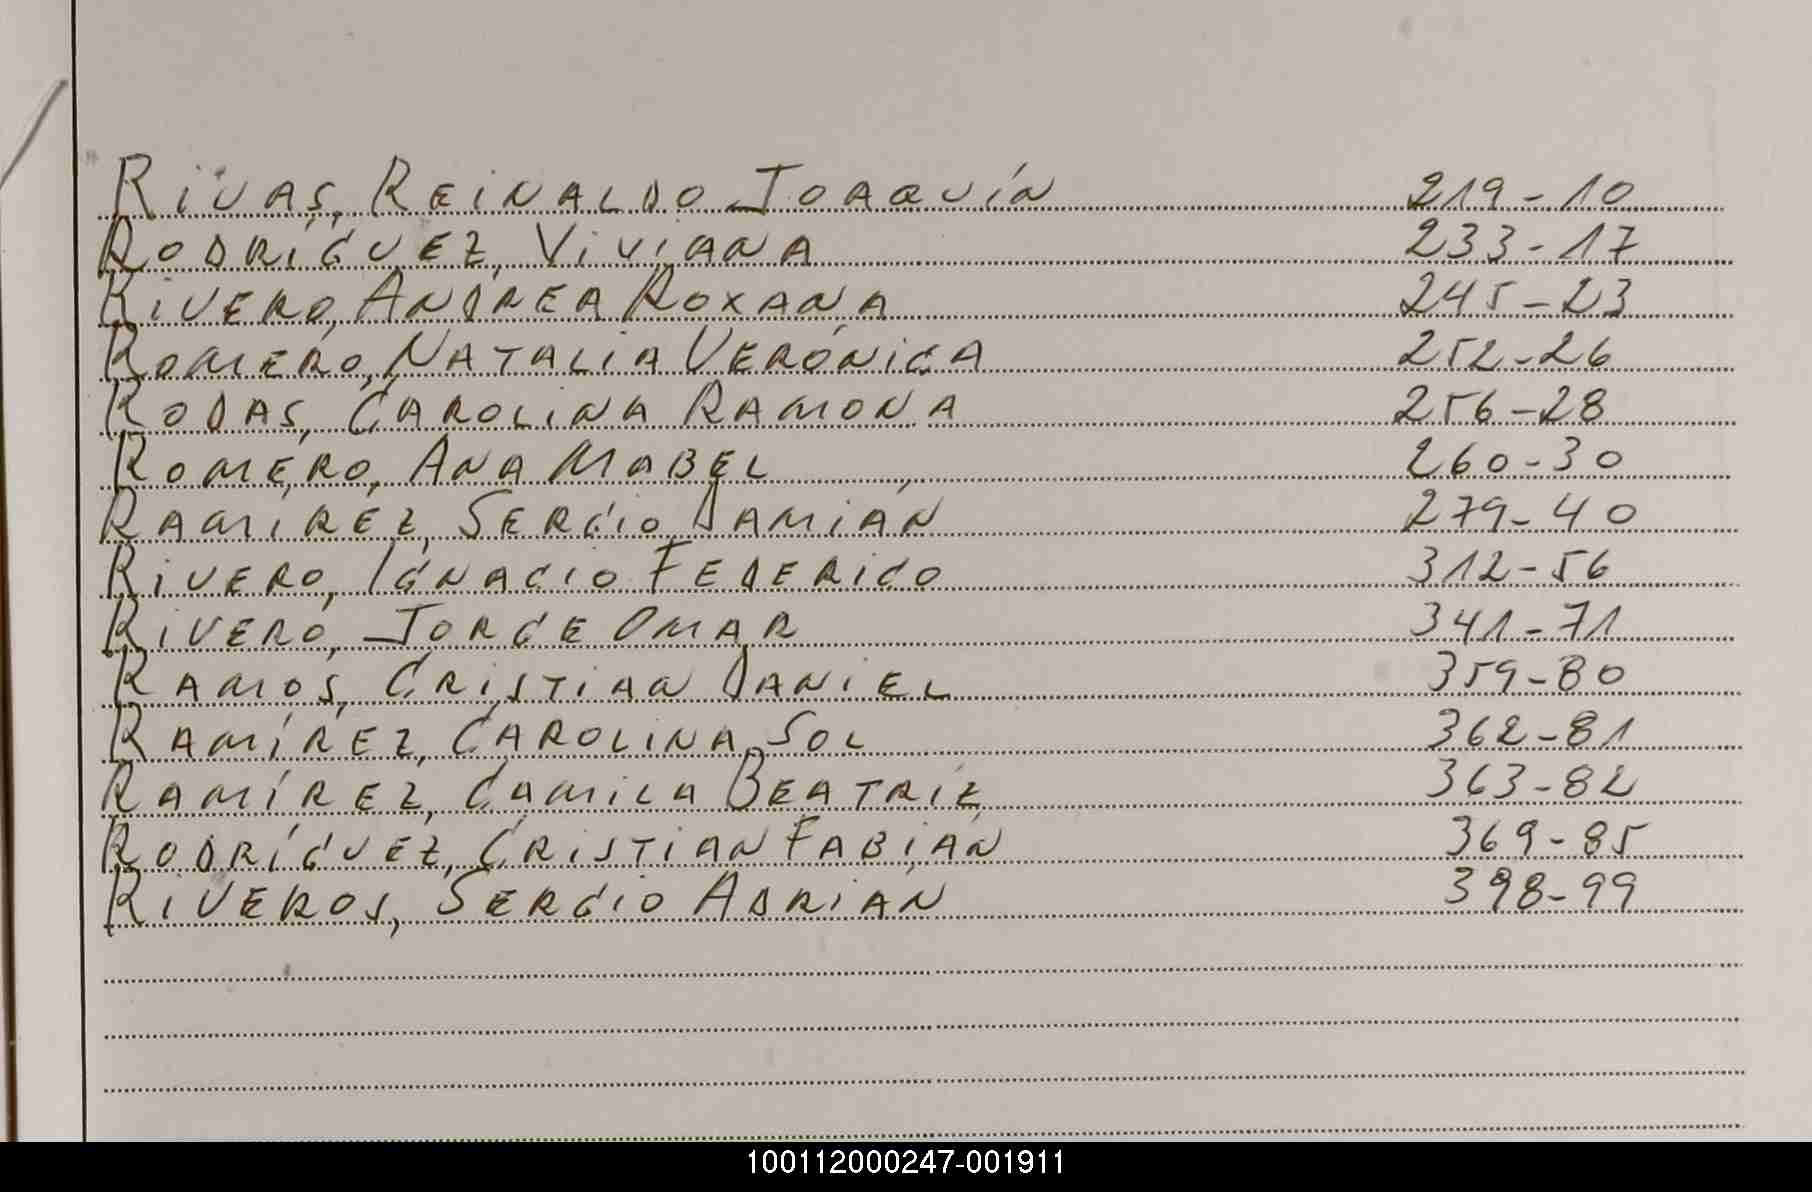 RIVAS, REINALDO JOAQUÍN 219-10
RODRÍGUEZ, VIVIANA 233-17
RIVERO, ANDREA ROXANA 245-23
ROMERO, NATALIA VERÓNICA 252-26
RODAS, CAROLINA RAMONA 256-28
ROMERO, ANA MABEL 260-30
RAMÍREZ, SERGIO DAMIÁN 279-40
RIVERO, IGNACIO FEDERICO 312-56
RIVERO, JORGE OMAR 341-71
RAMOS, CRISTIAN DANIEL 359-80
RAMÍREZ, CAROLINA SOL 362-81
RAMÍREZ, CAMILA BEATRIZ 363-82
RODRÍGUEZ, CRISTIAN FABIÁN 369-85
RIVEROS, SERGIO ADRIAN 398-99
100112000247-001911